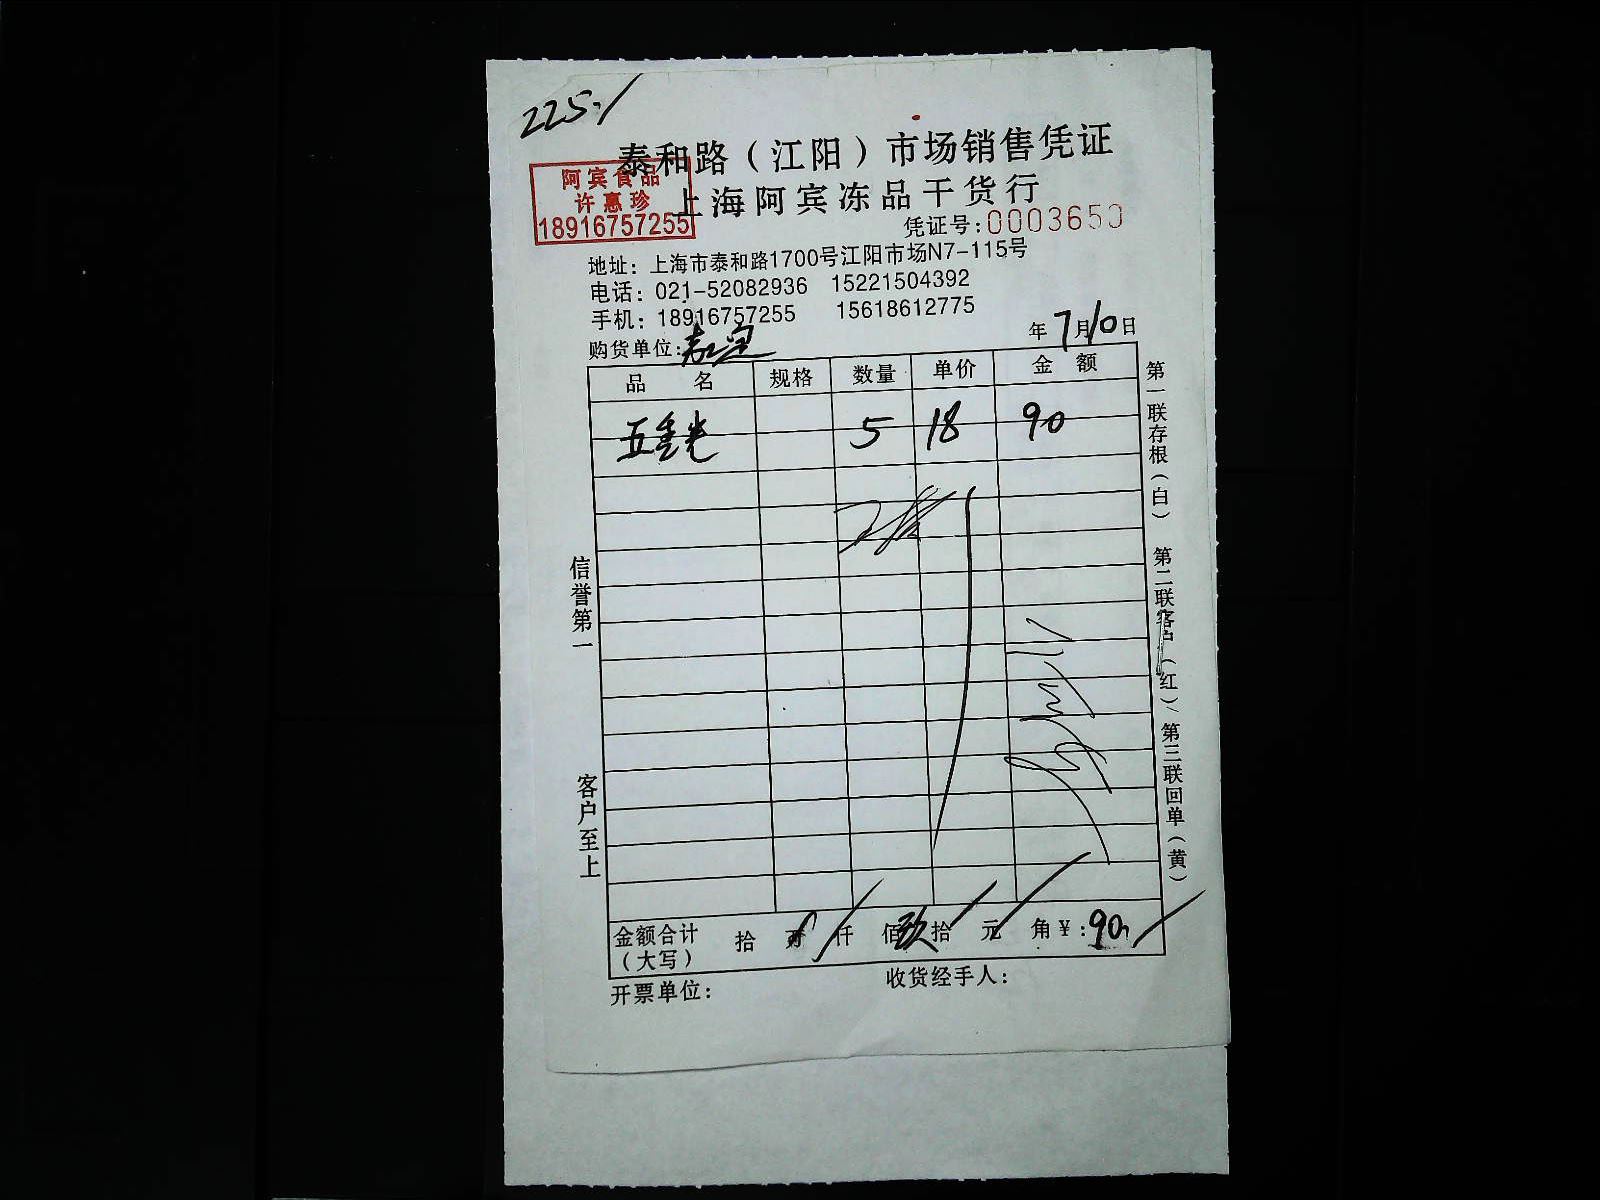 225.
泰和路（江阳）市场销售凭证
阿宾食品
许惠珍
18916757255
上海阿宾冻品干货行
凭证号:0003650
地址：上海市泰和路1700号江阳市场N7-115号
电话：021-52082936 15221504392
手机：18916757255 15618612775
年7月10日
购货单位:
品名 规格 数量 单价 金额
5 18 90
信誉第一
客户至上
第一联存根（白） 第二联客户（红） 第三联回单（黄）
金额合计（大写） 拾 万 仟 佰 玖拾 元 角 ¥:90
开票单位： 收货经手人：